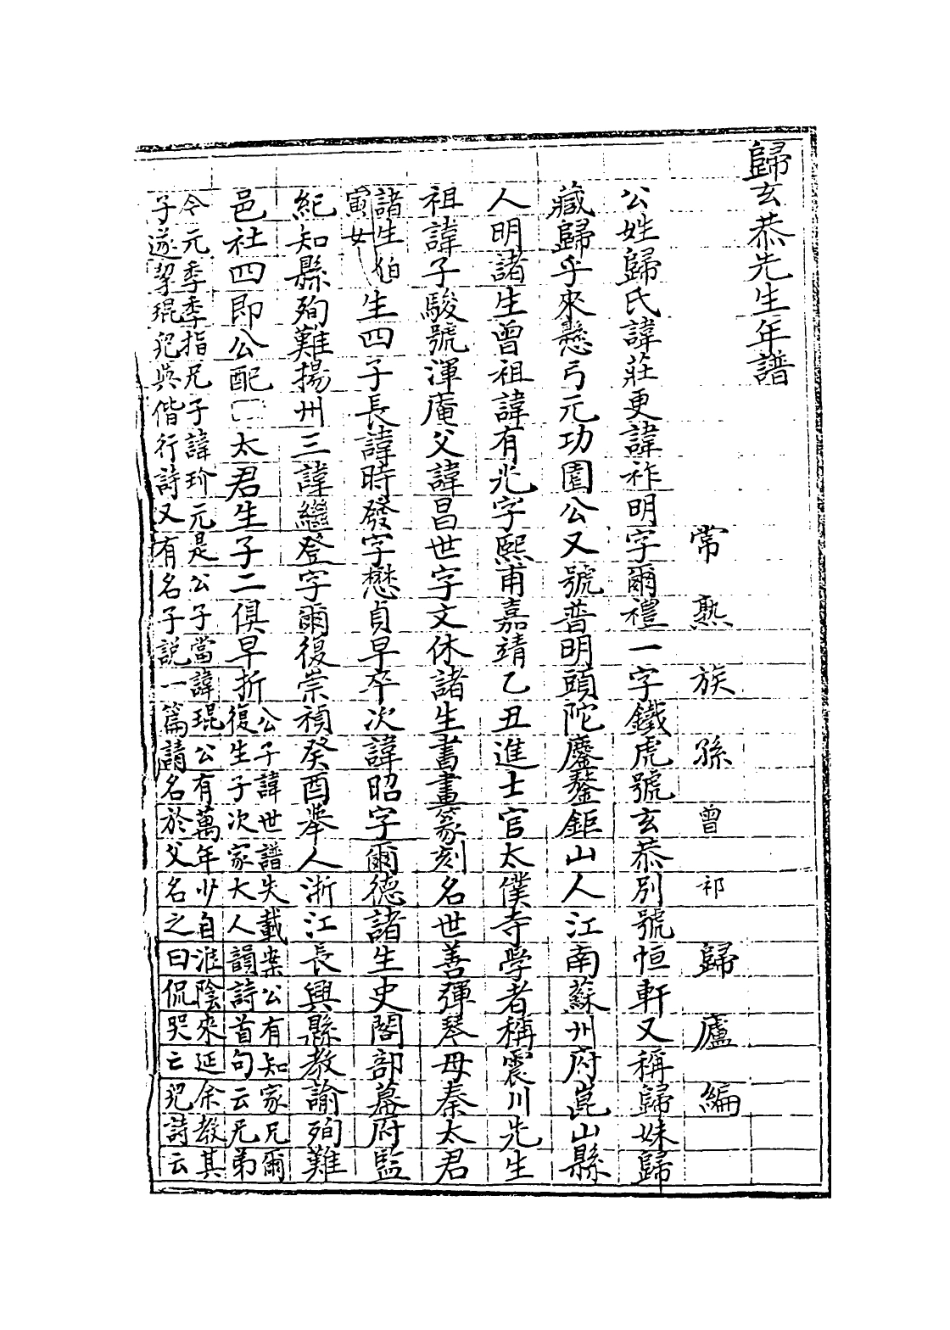 歸玄恭先生年譜
常熟族孫曾祁歸廬編
公姓歸氏諱莊更諱祚明字爾禮一字鐵虎號玄恭別號恒軒又稱歸妹歸
藏歸乎來懸弓元功園公又號普明頭陀鏖鏊鉅山人江南蘇州府崑山縣
人明諸生曾祖諱有光字熙甫嘉靖乙丑進士官太僕寺學者稱震川先生
祖諱子駿號渾庵父諱昌世字文休諸生書畫篆刻名世善彈琴母秦太君
諸生伯寅女生四子長諱時發字懋貞早卒次諱昭字爾德諸生史閣部幕府監
紀知縣殉難揚州三諱繼登字爾復崇禎癸酉舉人浙江長興縣教諭殉難
邑社四即公配□太君生子二俱早折公子諱世譜失載案公有知家兄爾
復生子次家大人韻詩首句云兄弟
令元季季指兄子諱玠元是公子當諱琨公有萬年少自淮陰來延余教其
子遂挈琨兒與偕行詩又有名子説一篇請名於父名之曰侃哭亡兒詩云